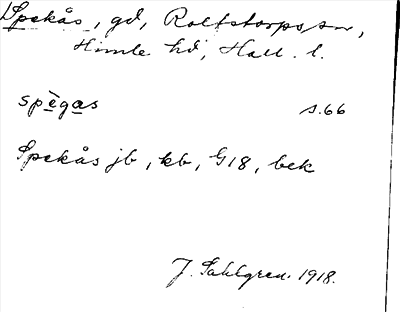 Spekås, gd, Rolfstorps sn,
Himle hd, Hall. l.
spègas s.66
Spekås jb, kb, G18, bek
J. Sahlgren. 1918.